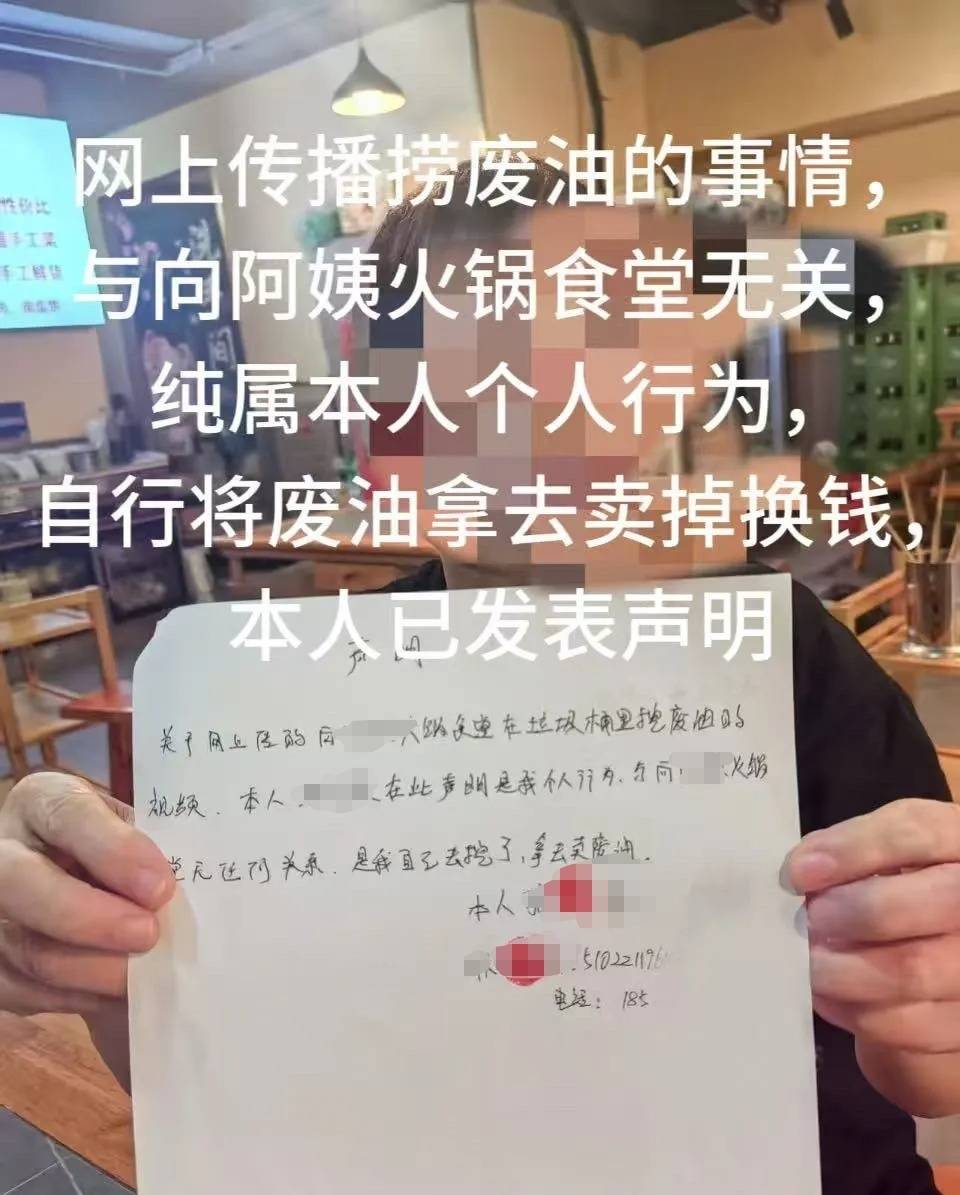 性价比
手工菜
手工鲜货
网上传播捞废油的事情，
与向阿姨火锅食堂无关，
纯属本人个人行为，
自行将废油拿去卖掉换钱，
本人已发表声明
声明
关于网上传的向 火锅食堂在垃圾桶里捞废油的
视频．本人 在此声明是我个人行为．与向 火锅
堂无任何关系．是我自己去捞了，拿去卖废油．
本人
510221196
电话：185